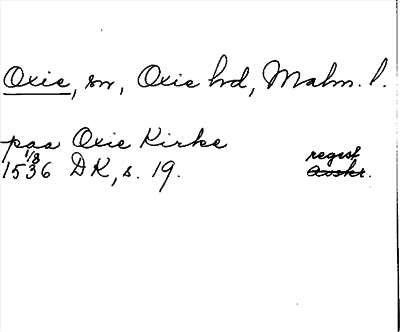 Oxie, sn, Oxie hd, Malm. l.
paa Oxie Kirke
1536 1/8 DK, s. 19.
regist
Avskr.